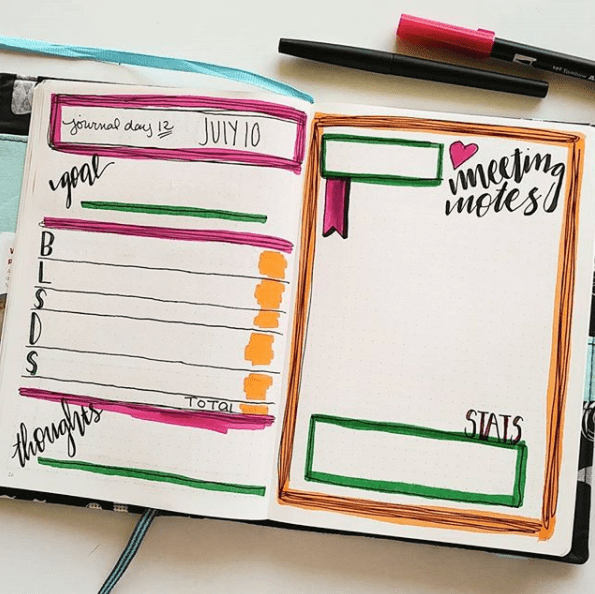 journal day 12 JULY 10
goal
B
L
S
D
S
TOTAL
thoughts
meeting
notes
STATS